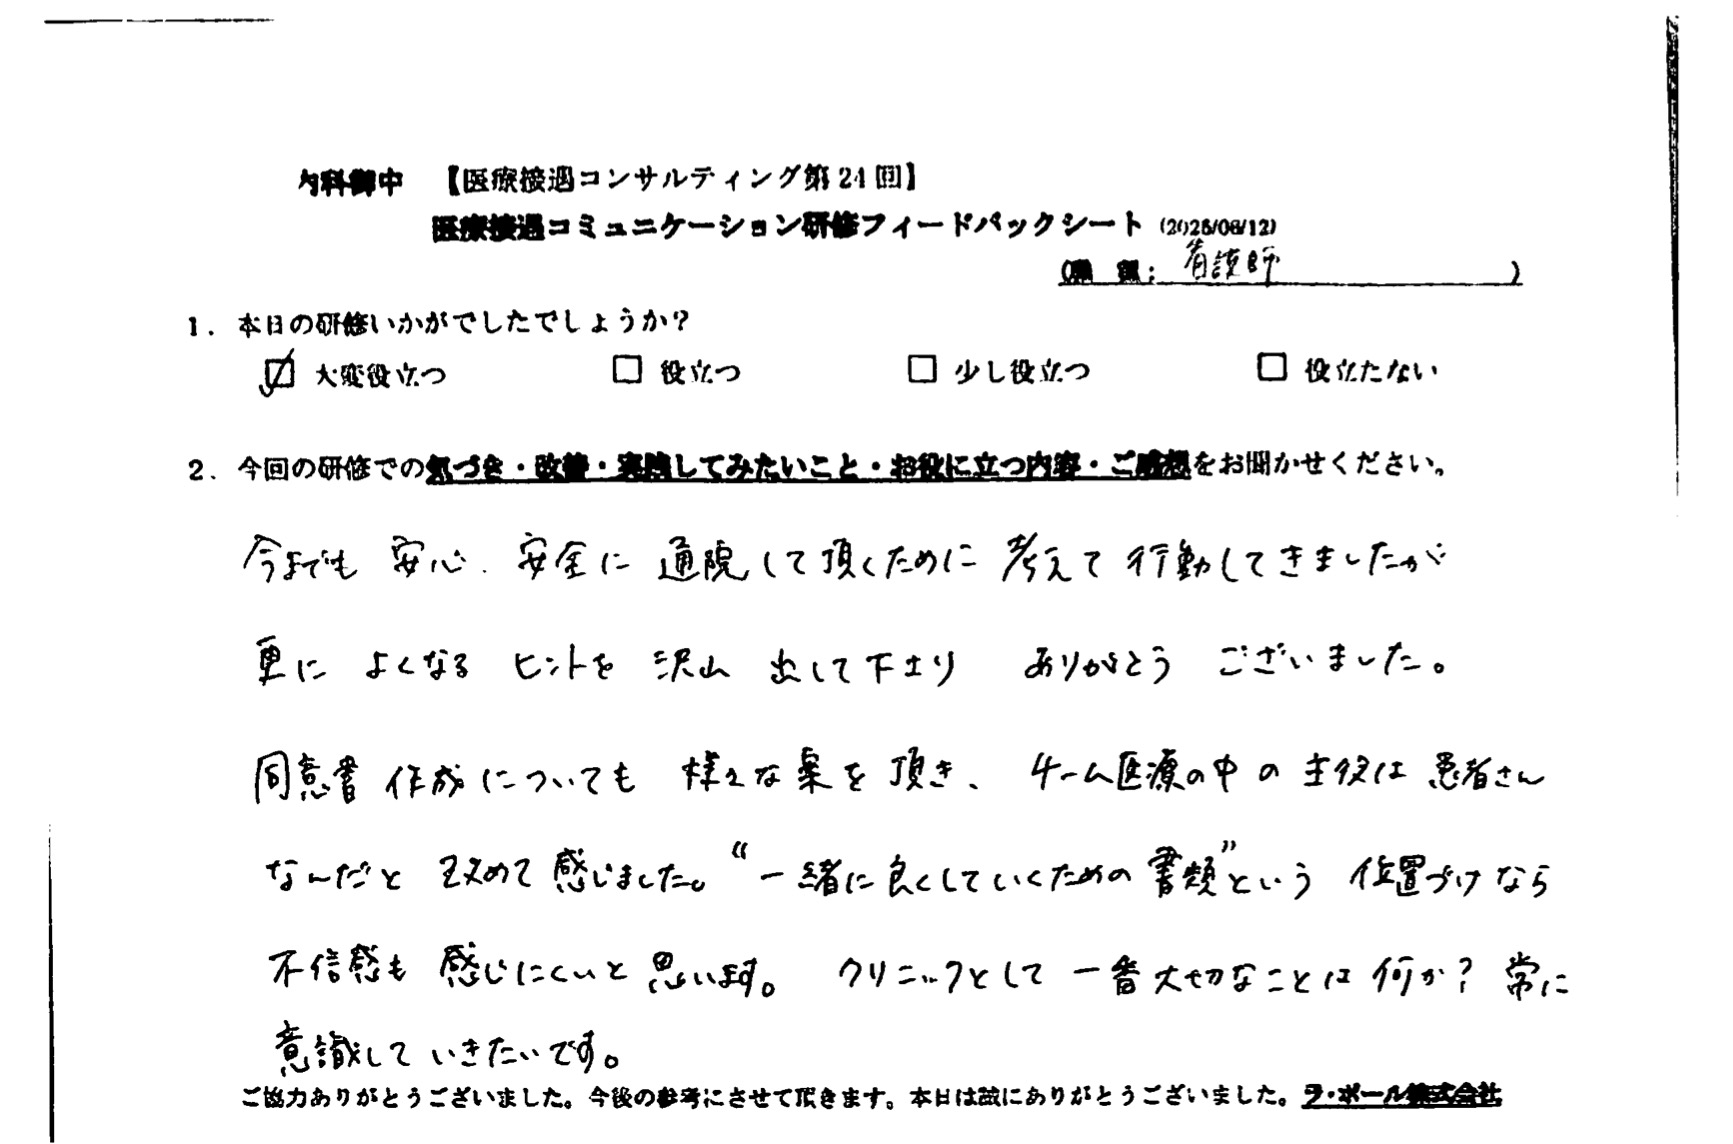 内科御中 【医療接遇コンサルティング第24回】
医療接遇コミュニケーション研修フィードバックシート (2025/08/12)
(職種: 看護師 )
1. 本日の研修いかがでしたでしょうか?
☑ 大変役立つ □ 役立つ □ 少し役立つ □ 役立たない
2. 今回の研修での気づき・改善・実践してみたいこと・お役に立つ内容・ご感想をお聞かせください。
今までも 安心、安全に 通院して頂くために 考えて 行動してきましたが
更に よくなる ヒントを 沢山 出して下さり ありがとう ございました。
同意書 作成についても 様々な案を 頂き、 チーム医療の中の 主役は 患者さん
なんだと 改めて 感じました。“一緒に 良くしていくための 書類”という 位置づけなら
不信感も 感じにくいと 思います。 クリニックとして 一番大切なことは 何か? 常に
意識して いきたいです。
ご協力ありがとうございました。今後の参考にさせて頂きます。本日は誠にありがとうございました。ラ・ポール株式会社